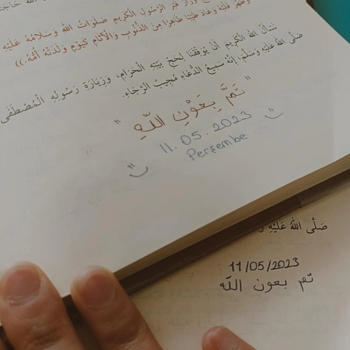 وزار قبر الرسول الكريم صلوات الله وسلامه عليه
طاهرا من الذنوب والآثام كيوم ولدته أمه.))
نسأل الله الكريم أن يوفقنا لحج بيته الحرام، وزيارة رسوله المصطفى
صلى الله عليه وسلم، إنه سميع الدعاء مجيب الرجاء.
" تَمَّ بِعَوْنِ اللّٰهِ "
11.05.2023
Perşembe
صَلَّى اللهُ عَلَيْهِ
11/05/2023
تم بعون الله